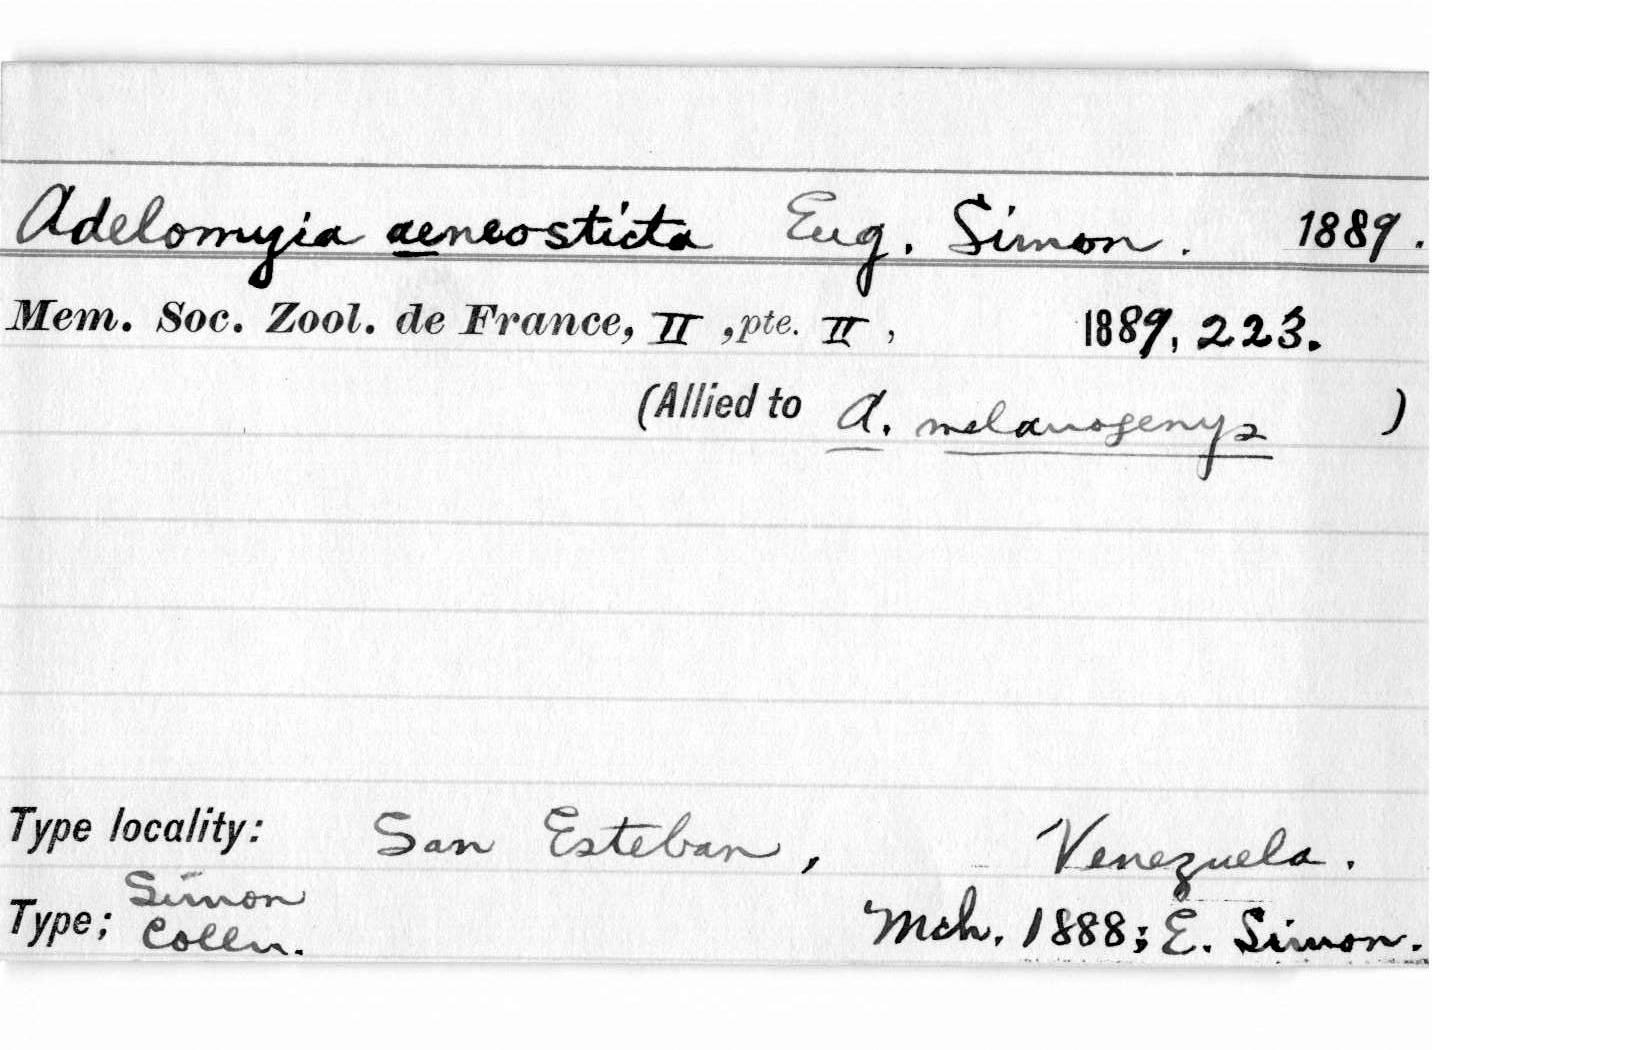 Adelomyia aeneosticta Eug. Simon. 1889.
Mem. Soc. Zool. de France, II, pte. II, 1889, 223.
(Allied to A. melanogenys )
Type locality: San Esteban, Venezuela.
Type; Simon Colln. Mch. 1888; E. Simon.